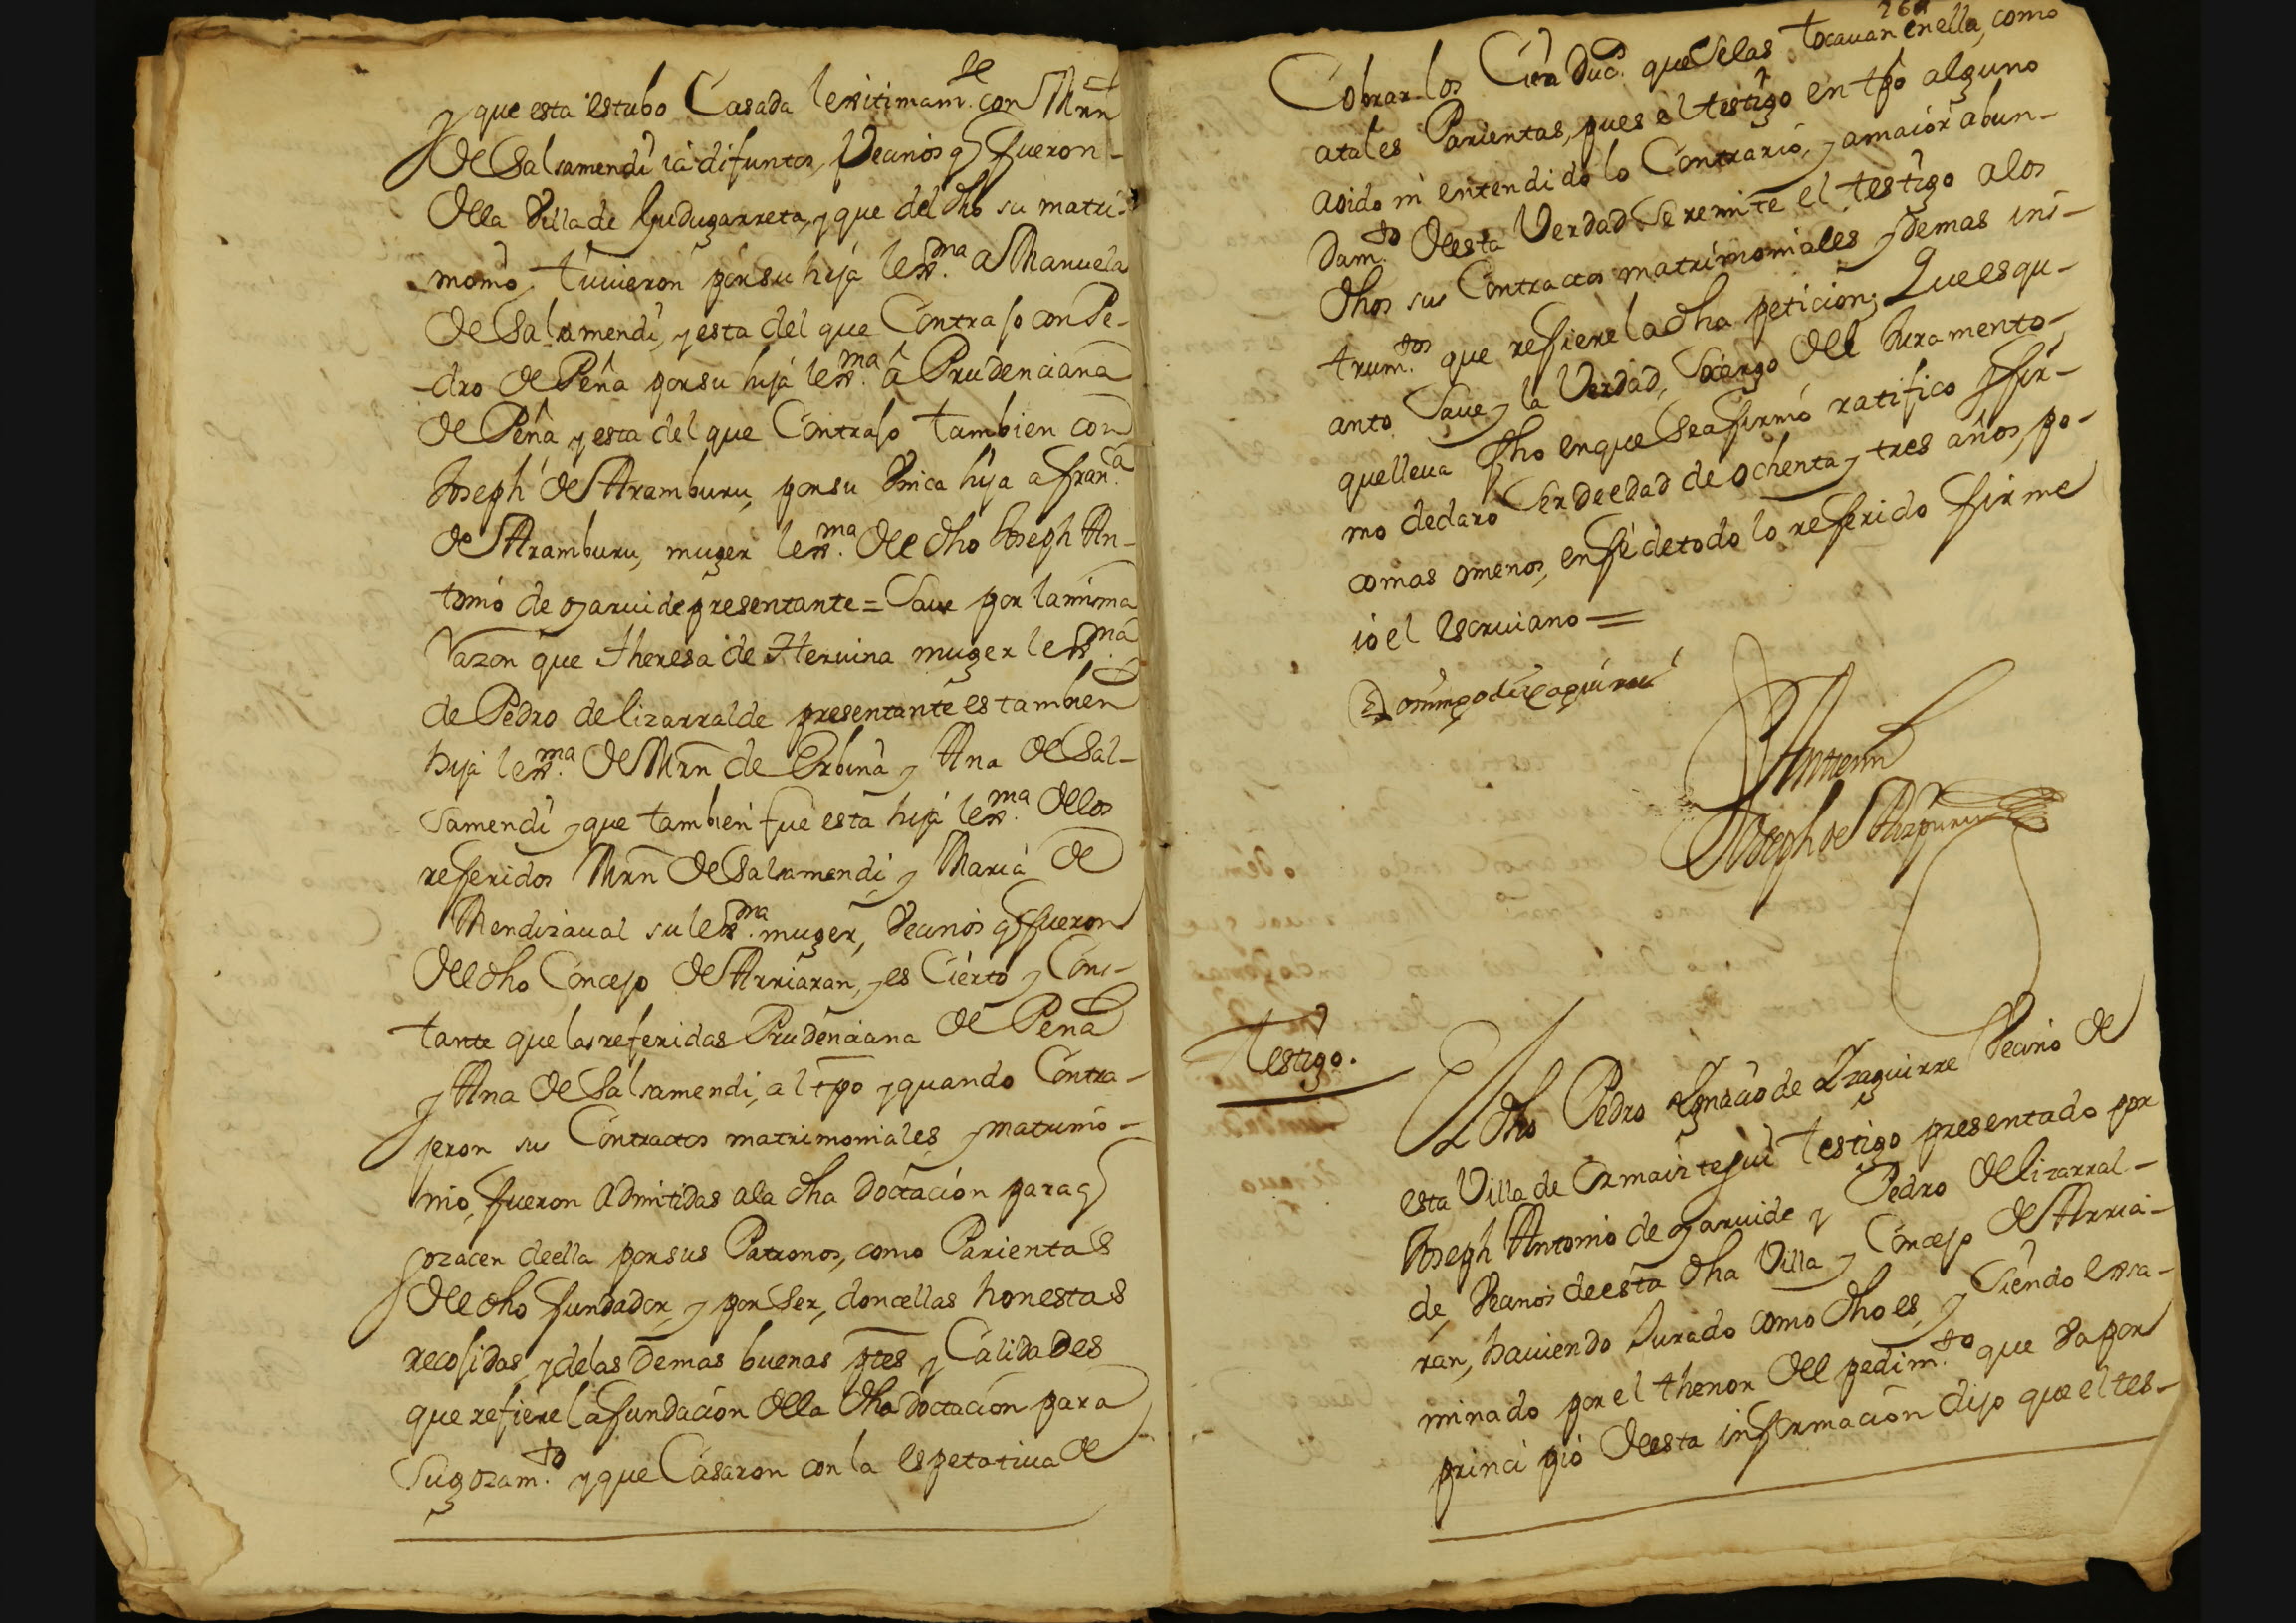 y que esta estubo Casada lexitimam.te con Mrn
de Salsamendi ia difuntos, Vecinos q fueron
de la Villa de Gudugarreta, y que del dho su matri-
monio tuvieron por su hija lexma a Manuela
de Salsamendi, y esta del que Contrajo con Pe-
dro de Peña por su hija lexma â Prudenciana
de Peña y esta del que Contrajo tambien con
Joseph de Aramburu, por su Vnica hija a fran.ca
de Aramburu, muger lexma de dho Joseph An-
tonio de ogarvide presentante = Save por la misma
Razon que theresa de Hervina muger lexma
de Pedro de lizarralde presentante es tambien
hija lexma de Mrn de Erbina y Ana de Sal-
samendi y que tambien fue esta hija lexma de los
referidos Mrn de Salsamendi y Maria de
Mendizaval su lexma muger, Vecinos q fueron
de dho Concejo de Arriaran, y es Cierto y Cons-
tante que las referidas Prudenciana de Peña
y Ana de Salsamendi, al tpo y quando Contra-
jeron sus Contractos matrimoniales y matrimo-
nio, fueron admitidas a la dha doctacion para q
gozacen de ella por sus Patronos, como Parientas
de dho fundador, y por ser, doncellas honestas
recojidas, y de las demas buenas ptes y Calidades
que refiere la fundacion de la dha doctacion para
su gozam.to y que Casaron con la espetativa de
264
Cobrar los Cien Duc.s que Se las tocavan en ella, como
a tales Parientas, pues el testigo en tpo alguno
a oido ni entendido lo Contrario, y a maior abun-
dam.to de esta Verdad Se remite el testigo a los
dhos sus Contractos matrimoniales y demas ins-
trum.tos que refiere la dha peticion; Que es qu-
anto Save y la Verdad, So cargo del Juramento
que lleva fho en que Se afirmó ratifico y fir-
mo declaro Ser de edad de ochenta y tres años, po-
co mas o menos, en fé de todo lo referido firme
io el escrivano =
Domingo de Yzaguirre
Ante mi
Joseph de Aizpuru
Testigo.
El dho Pedro Ygnacio de Yzaguirre Vecino de
esta Villa de Ormaiztegui testigo presentado por
Joseph Antonio de ogarvide y Pedro de lizarral-
de, Vecinos de esta dha Villa y Concejo de Arria-
ran, haviendo Jurado como dho es, y Siendo exsa-
minado por el thenor del pedim.to que Va por
principio de esta informacion dijo que el tes-